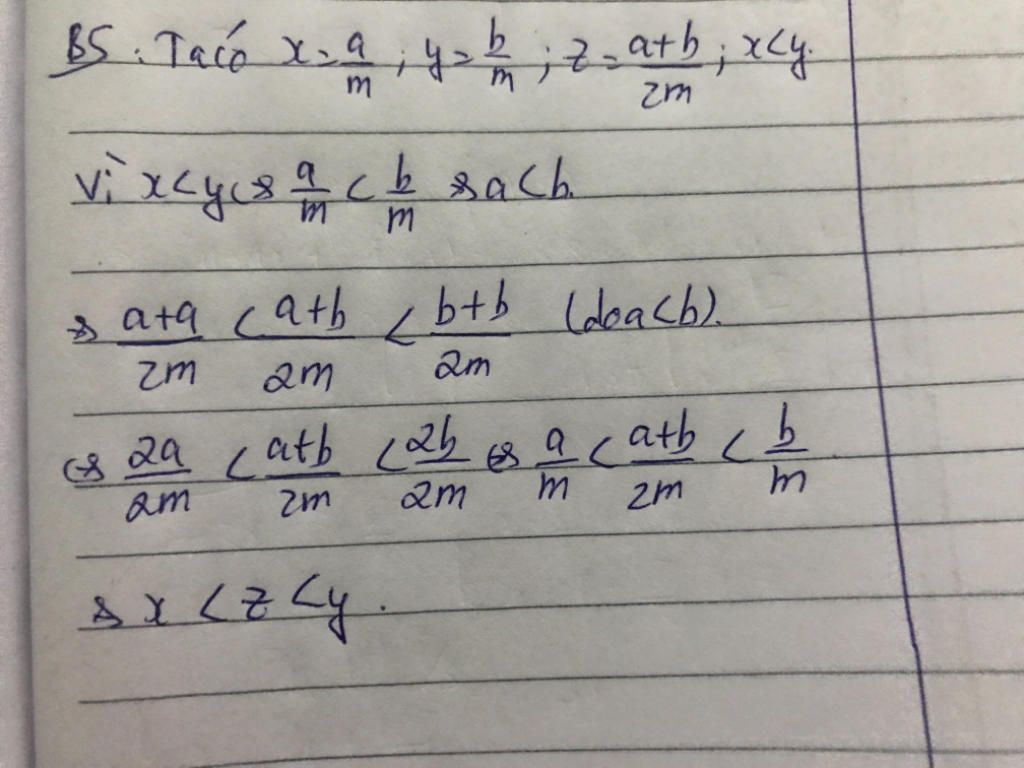 B5: Ta có x = a/m ; y = b/m ; z = a+b/2m ; x < y.
Vì x < y <=> a/m < b/m => a < b.
=> a+a/2m < a+b/2m < b+b/2m (do a < b).
<=> 2a/2m < a+b/2m < 2b/2m <=> a/m < a+b/2m < b/m
=> x < z < y.